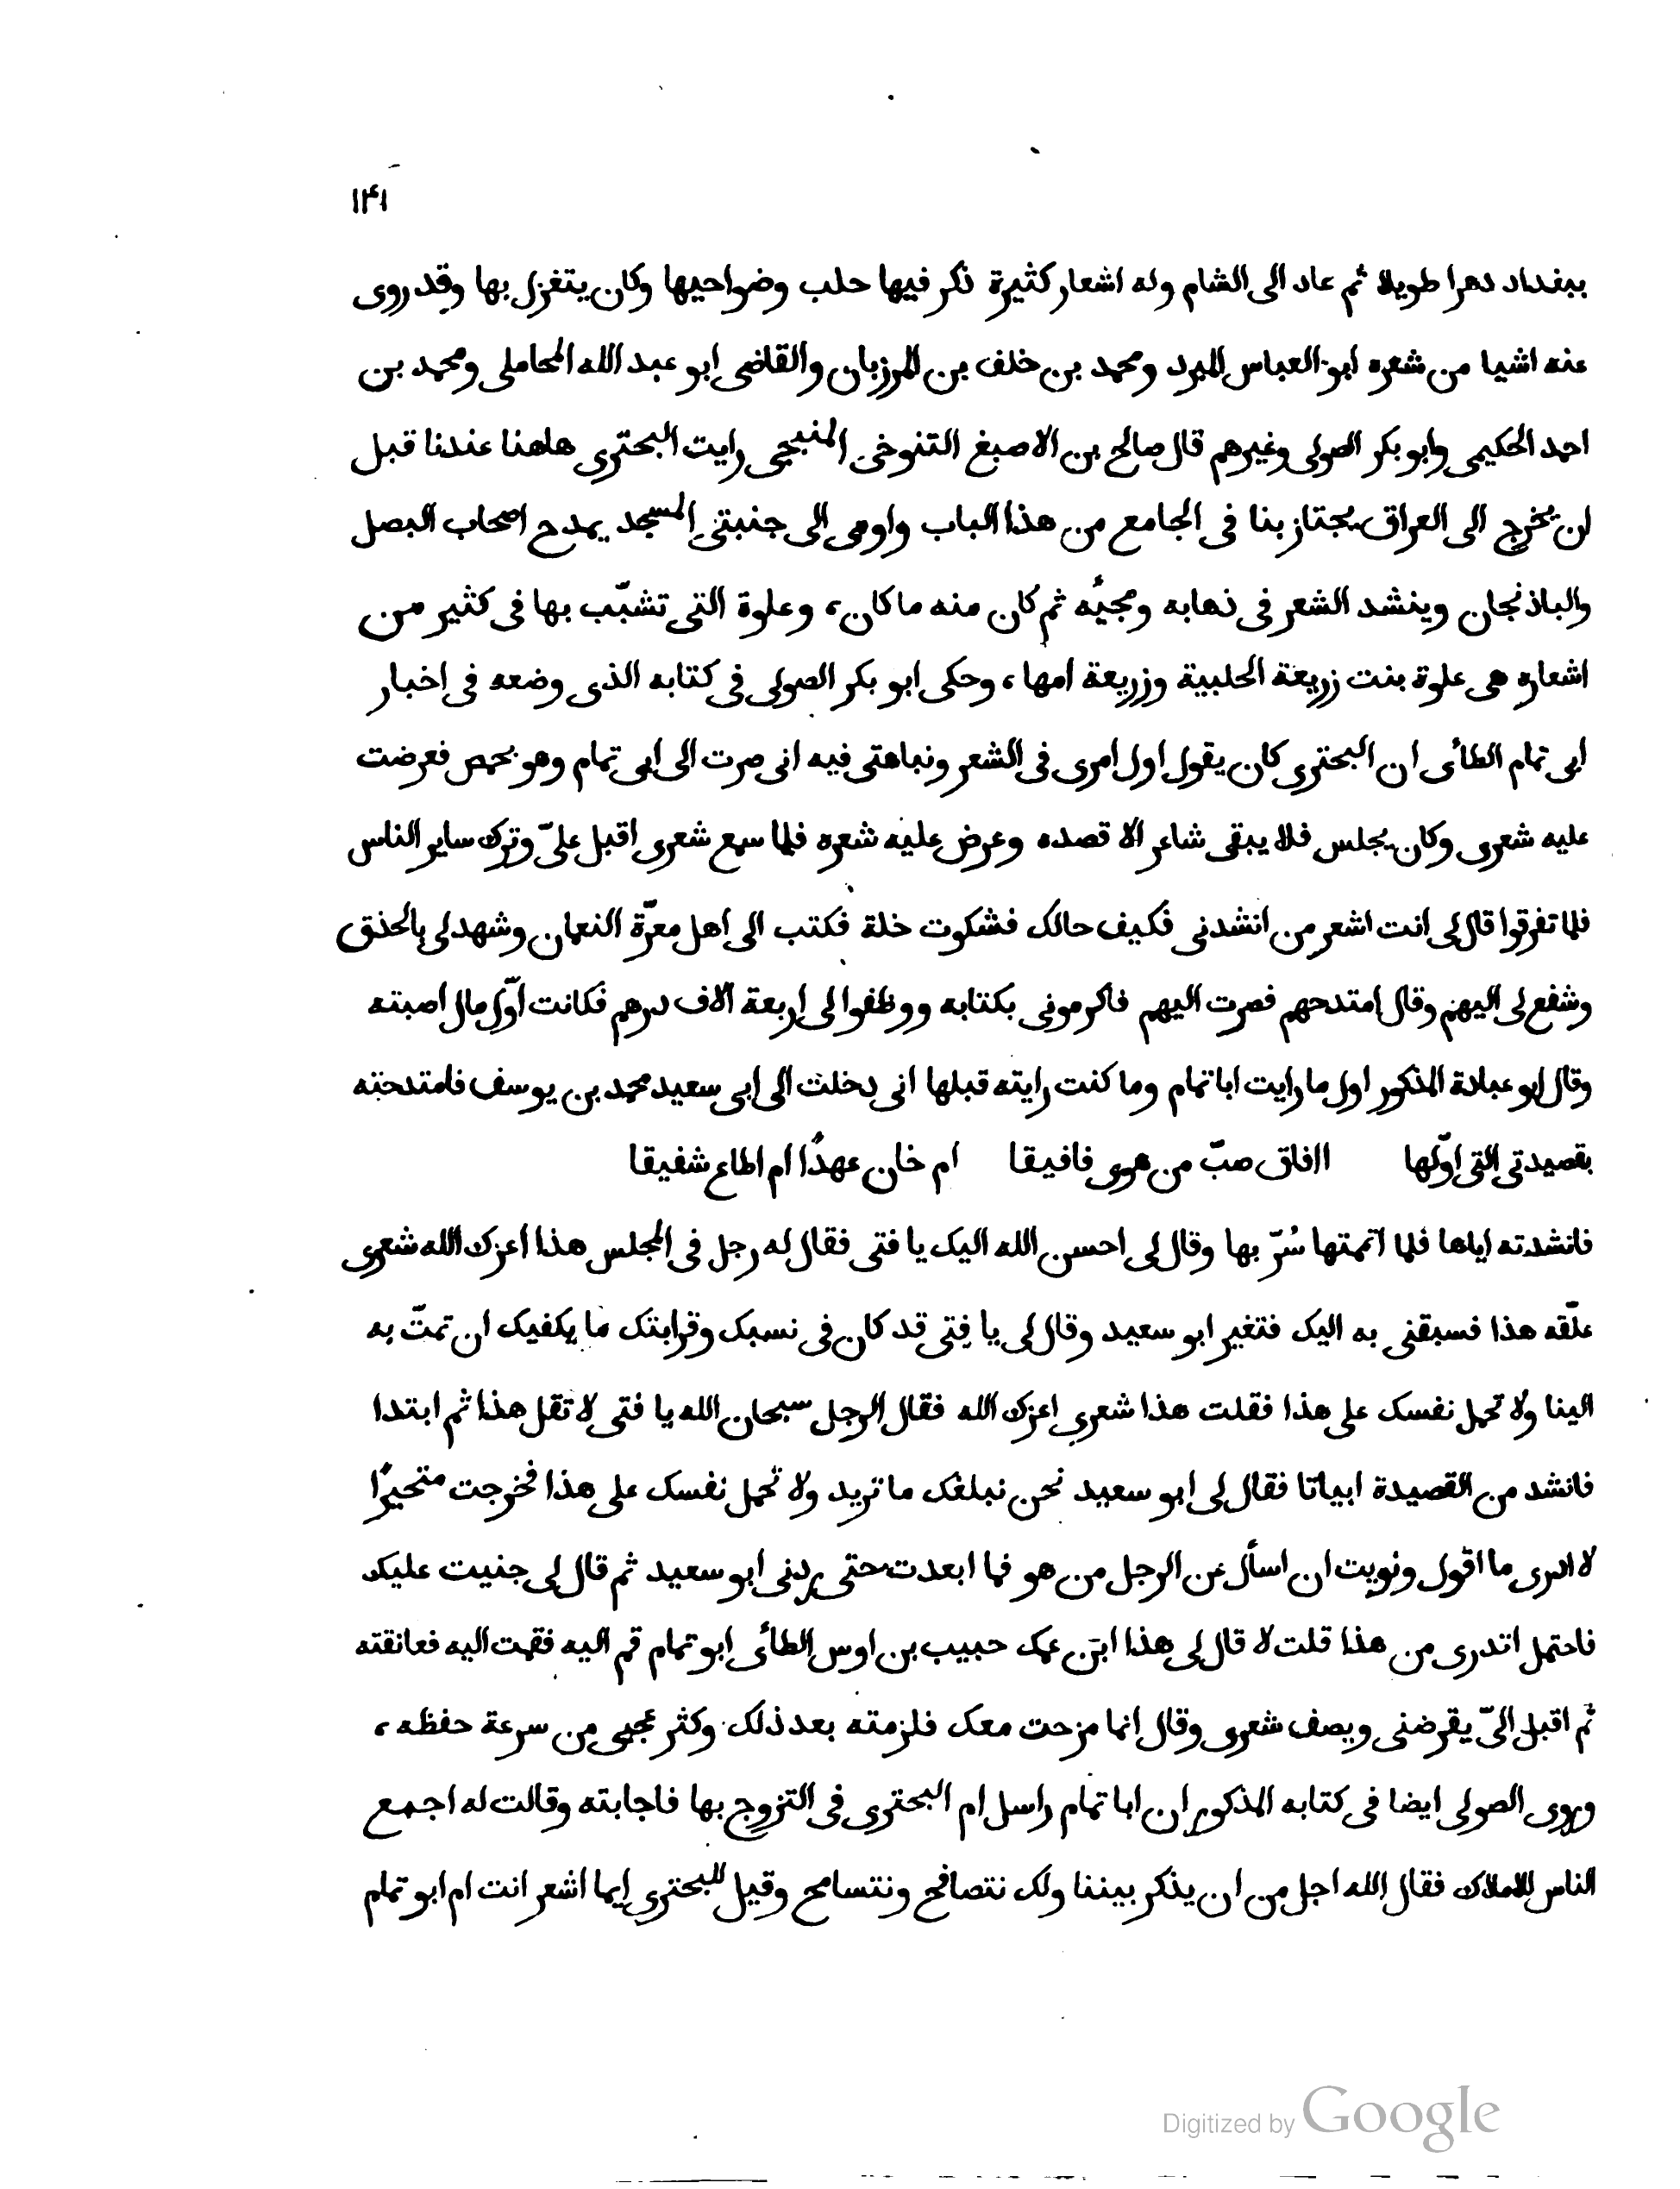 ١٣١
ببغداد دهرا طويلا ثم عاد الى الشام وله اشعار كثيرة ذكر فيها حلب وضواحيها وكان يتغزل بها وقد روى
عنه اشيا من شعره ابو العباس المبرد ومحمد بن خلف بن المرزبان والقاضى ابو عبد الله المحاملى ومحمد بن
احمد الحكيمى وابو بكر الصولى وغيرهم قال صالح بن الاصبغ التنوخى المنبجى رايت البحترى هاهنا عندنا قبل
ان يخرج الى العراق يجتاز بنا فى الجامع من هذا الباب واومى الى جنبتى المسجد يمدح اصحاب البصل
والباذنجان وينشد الشعر فى ذهابه ومجيُه ثم كان منه ما كان، وعلوة التى تشبّب بها فى كثير من
اشعاره هى علوة بنت زريعة الحلبية وزريعة امها، وحكى ابو بكر الصولى فى كتابه الذى وضعه فى اخبار
ابى تمام الطائى ان البحترى كان يقول اول امرى فى الشعر ونباهتى فيه انى صرت الى ابى تمام وهو بحمص فعرضت
عليه شعرى وكان يجلس فلا يبقى شاعر الا قصده وعرض عليه شعره فلما سمع شعرى اقبل علىّ وترك ساير الناس
فلما تفرقوا قال لى انت اشعر من انشدنى فكيف حالك فشكوت خلة فكتب الى اهل معرّة النعمان وشهد لى بالحذق
وشفع لى اليهم وقال امتدحهم فصرت اليهم فاكرمونى بكتابه ووظفوا لى اربعة آلاف درهم فكانت اوّل مال اصبته
وقال ابو عبادة المذكور اول ما رايت ابا تمام وما كنت رايته قبلها انى دخلت الى ابى سعيد محمد بن يوسف فامتدحته
بقصيدتى التى اوّلها اافاق صبّ من هوى فافيقا ام خان عهدًا ام اطاع شفيقا
فانشدته اياها فلما اتممتها سُرّ بها وقال لى احسن الله اليك يا فتى فقال له رجل فى المجلس هذا اعزك الله شعرى
علّقه هذا فسبقنى به اليك فتغير ابو سعيد وقال لى يا فتى قد كان فى نسبك وقرابتك ما يكفيك ان تمتّ به
الينا ولا تحمل نفسك على هذا فقلت هذا شعرى اعزك الله فقال الرجل سبحان الله يا فتى لا تقل هذا ثم ابتدا
فانشد من القصيدة ابياتا فقال لى ابو سعيد نحن نبلغك ما تريد ولا تحمل نفسك على هذا فخرجت متحيرًا
لا ادرى ما اقول ونويت ان اسأل عن الرجل من هو فما ابعدت حتى ردنى ابو سعيد ثم قال لى جنيت عليك
فاحتمل اتدرى من هذا قلت لا قال لى هذا ابن عمك حبيب بن اوس الطائى ابو تمام قم اليه فقمت اليه فعانقته
ثم اقبل الىّ يقرضنى ويصف شعرى وقال انما مزحت معك فلزمته بعد ذلك وكثر عجبى من سرعة حفظه،
وروى الصولى ايضا فى كتابه المذكور ان ابا تمام راسل ام البحترى فى التزوج بها فاجابته وقالت له اجمع
الناس للاملاك فقال الله اجل من ان يذكر بيننا ولكن نتصافح ونتسامح وقيل للبحترى ايما اشعر انت ام ابو تمام
Digitized by Google